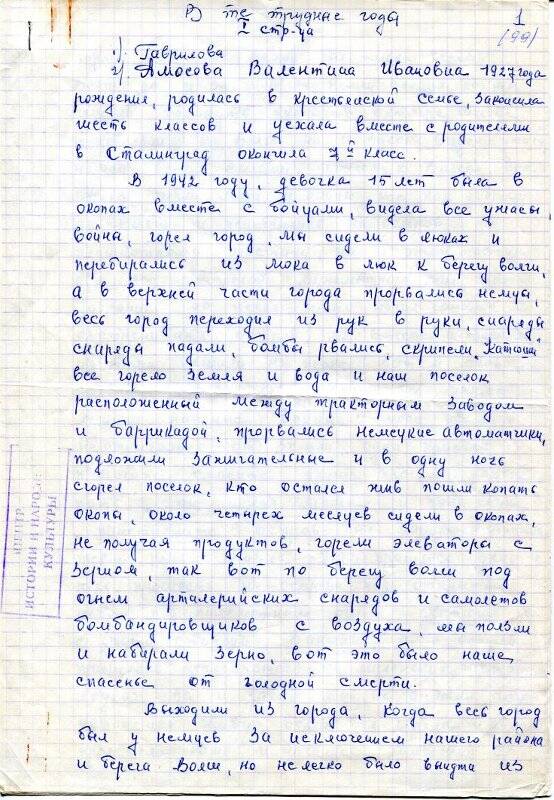 В те трудные годы
I стр-ца
1
(99)
1) Гаврилова
2) Амосова Валентина Ивановна 1927 года
рождения, родилась в крестьенской семье, закончила
шесть классов и уехала вместе с родителями
в Сталинград окончила 7й класс.
В 1942 году, девочка 15 лет была в
окопах вместе с бойцами, видела все ужасы
войны, горел город, мы сидели в люках и
перебирались из люка в люк к берегу волги,
а в верхней части города прорвались немцы,
весь город переходил из рук в руки, снаряды
снаряды падали, бомбы рвались, скрипели "Катюши"
все горело земля и вода и наш поселок
расположенный между тракторным заводом
и баррикадой, прорвались немецкие автоматчики,
подложили зажигательные и в одну ночь
сгорел поселок, кто остался жив пошли копать
окопы, около четырех месяцев сидели в окопах,
не получая продуктов, горели элеваторы с
зерном, так вот по берегу волги под
огнем арталерийских снарядов и самолетов
бомбандировщиков с воздуха, мы ползли
и набирали зерно, вот это было наше
спасенье от голодной смерти.
Выходили из города, когда весь город
был у немцев за исключением нашего района
и берега Волги, но не легко было выйдти из
ЦЕНТР
ИСТОРИИ И НАРОД.
КУЛЬТУРЫ